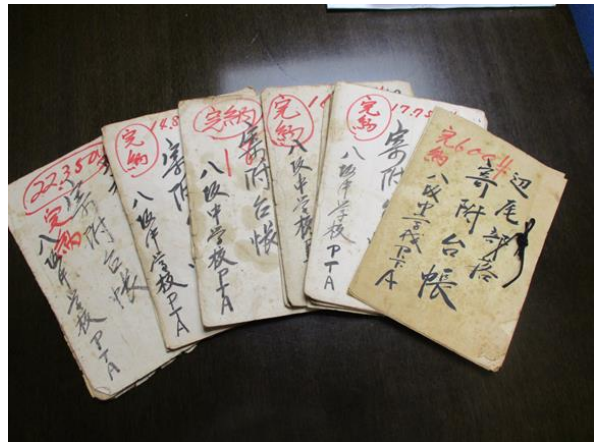 22.350
完納
寄附台帳
八坂中学校PTA
完納
14.8
寄附
八坂中学校PTA
完納
寄附台帳
八坂中学校PTA
完納
八坂中学校PTA
完納
17.75
寄附
八坂中学校PTA
完納
辺尾部落
寄附台帳
八坂中学校PTA